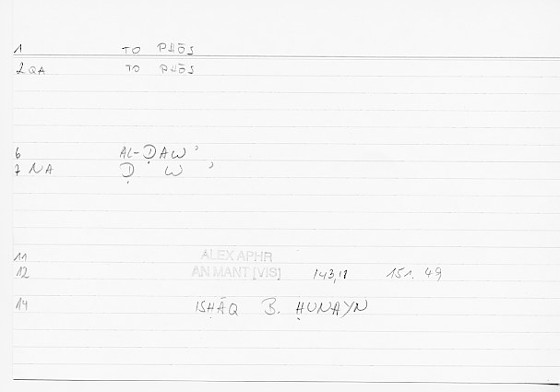 1 TO PHŌS
2 QA TO PHŌS
6 AL-ḌAWʾ
7 NA Ḍ W ʾ
11 ALEX APHR
12 AN MANT [VIS] 143,11 151.49
14 ISḤĀQ B. ḤUNAYN